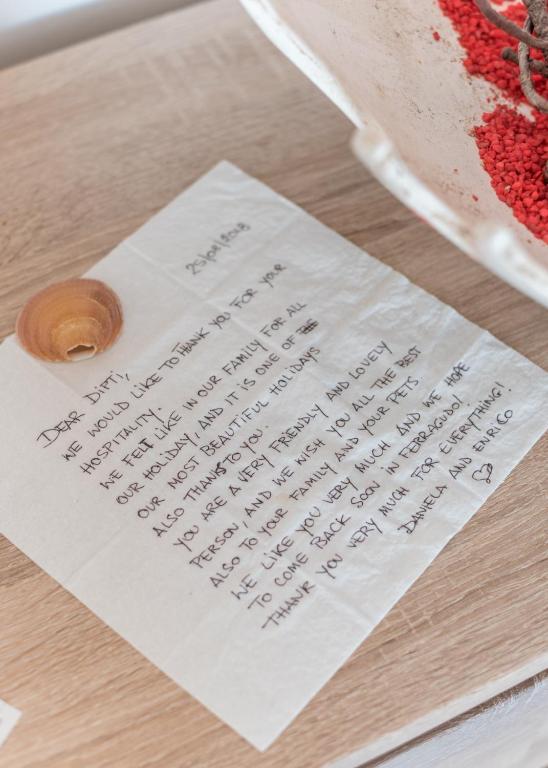 25/08/2018
DEAR DIPTI,
WE WOULD LIKE TO THANK YOU FOR YOUR
HOSPITALITY.
WE FELT LIKE IN OUR FAMILY FOR ALL
OUR HOLIDAY, AND IT IS ONE OF
OUR MOST BEAUTIFUL HOLIDAYS
ALSO THANKS TO YOU.
YOU ARE A VERY FRIENDLY AND LOVELY
PERSON, AND WE WISH YOU ALL THE BEST
ALSO TO YOUR FAMILY AND YOUR PETS.
WE LIKE YOU VERY MUCH AND WE HOPE
TO COME BACK SOON IN FERRAGUDO!
THANK YOU VERY MUCH FOR EVERYTHING!
DANIELA AND ENRICO